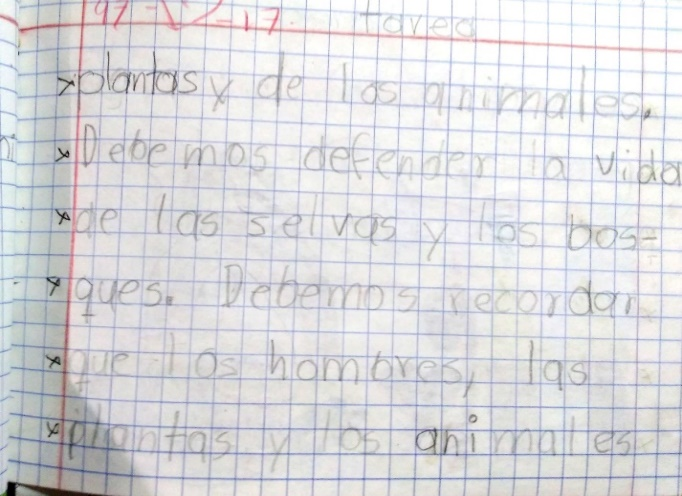 17. tarea
plantas y de los animales.
Debemos defender la vida
de las selvas y los bos-
ques. Debemos recordar
que los hombres, las
plantas y los animales